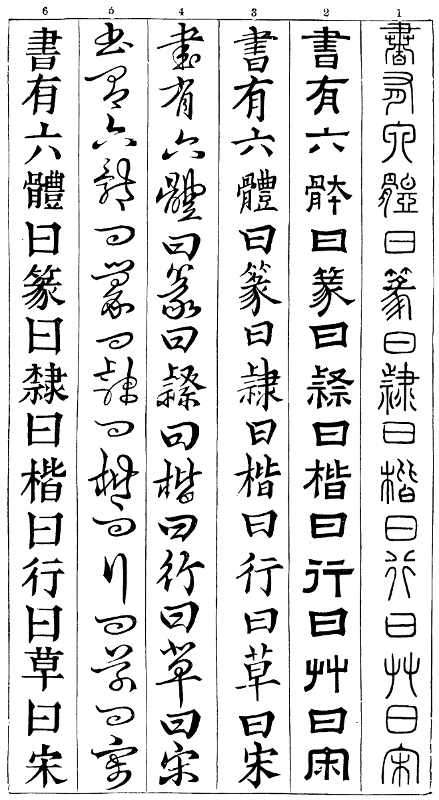 6 5 4 3 2 1
書有六體曰篆曰隸曰楷曰行曰艸曰宋
書有六骵曰篆曰隸曰楷曰行曰艸曰宋
書有六體曰篆曰隸曰楷曰行曰草曰宋
書有六體曰篆曰隸曰楷曰行曰草曰宋
書有六體曰篆曰隸曰楷曰行曰草曰宋
書有六體曰篆曰隸曰楷曰行曰草曰宋